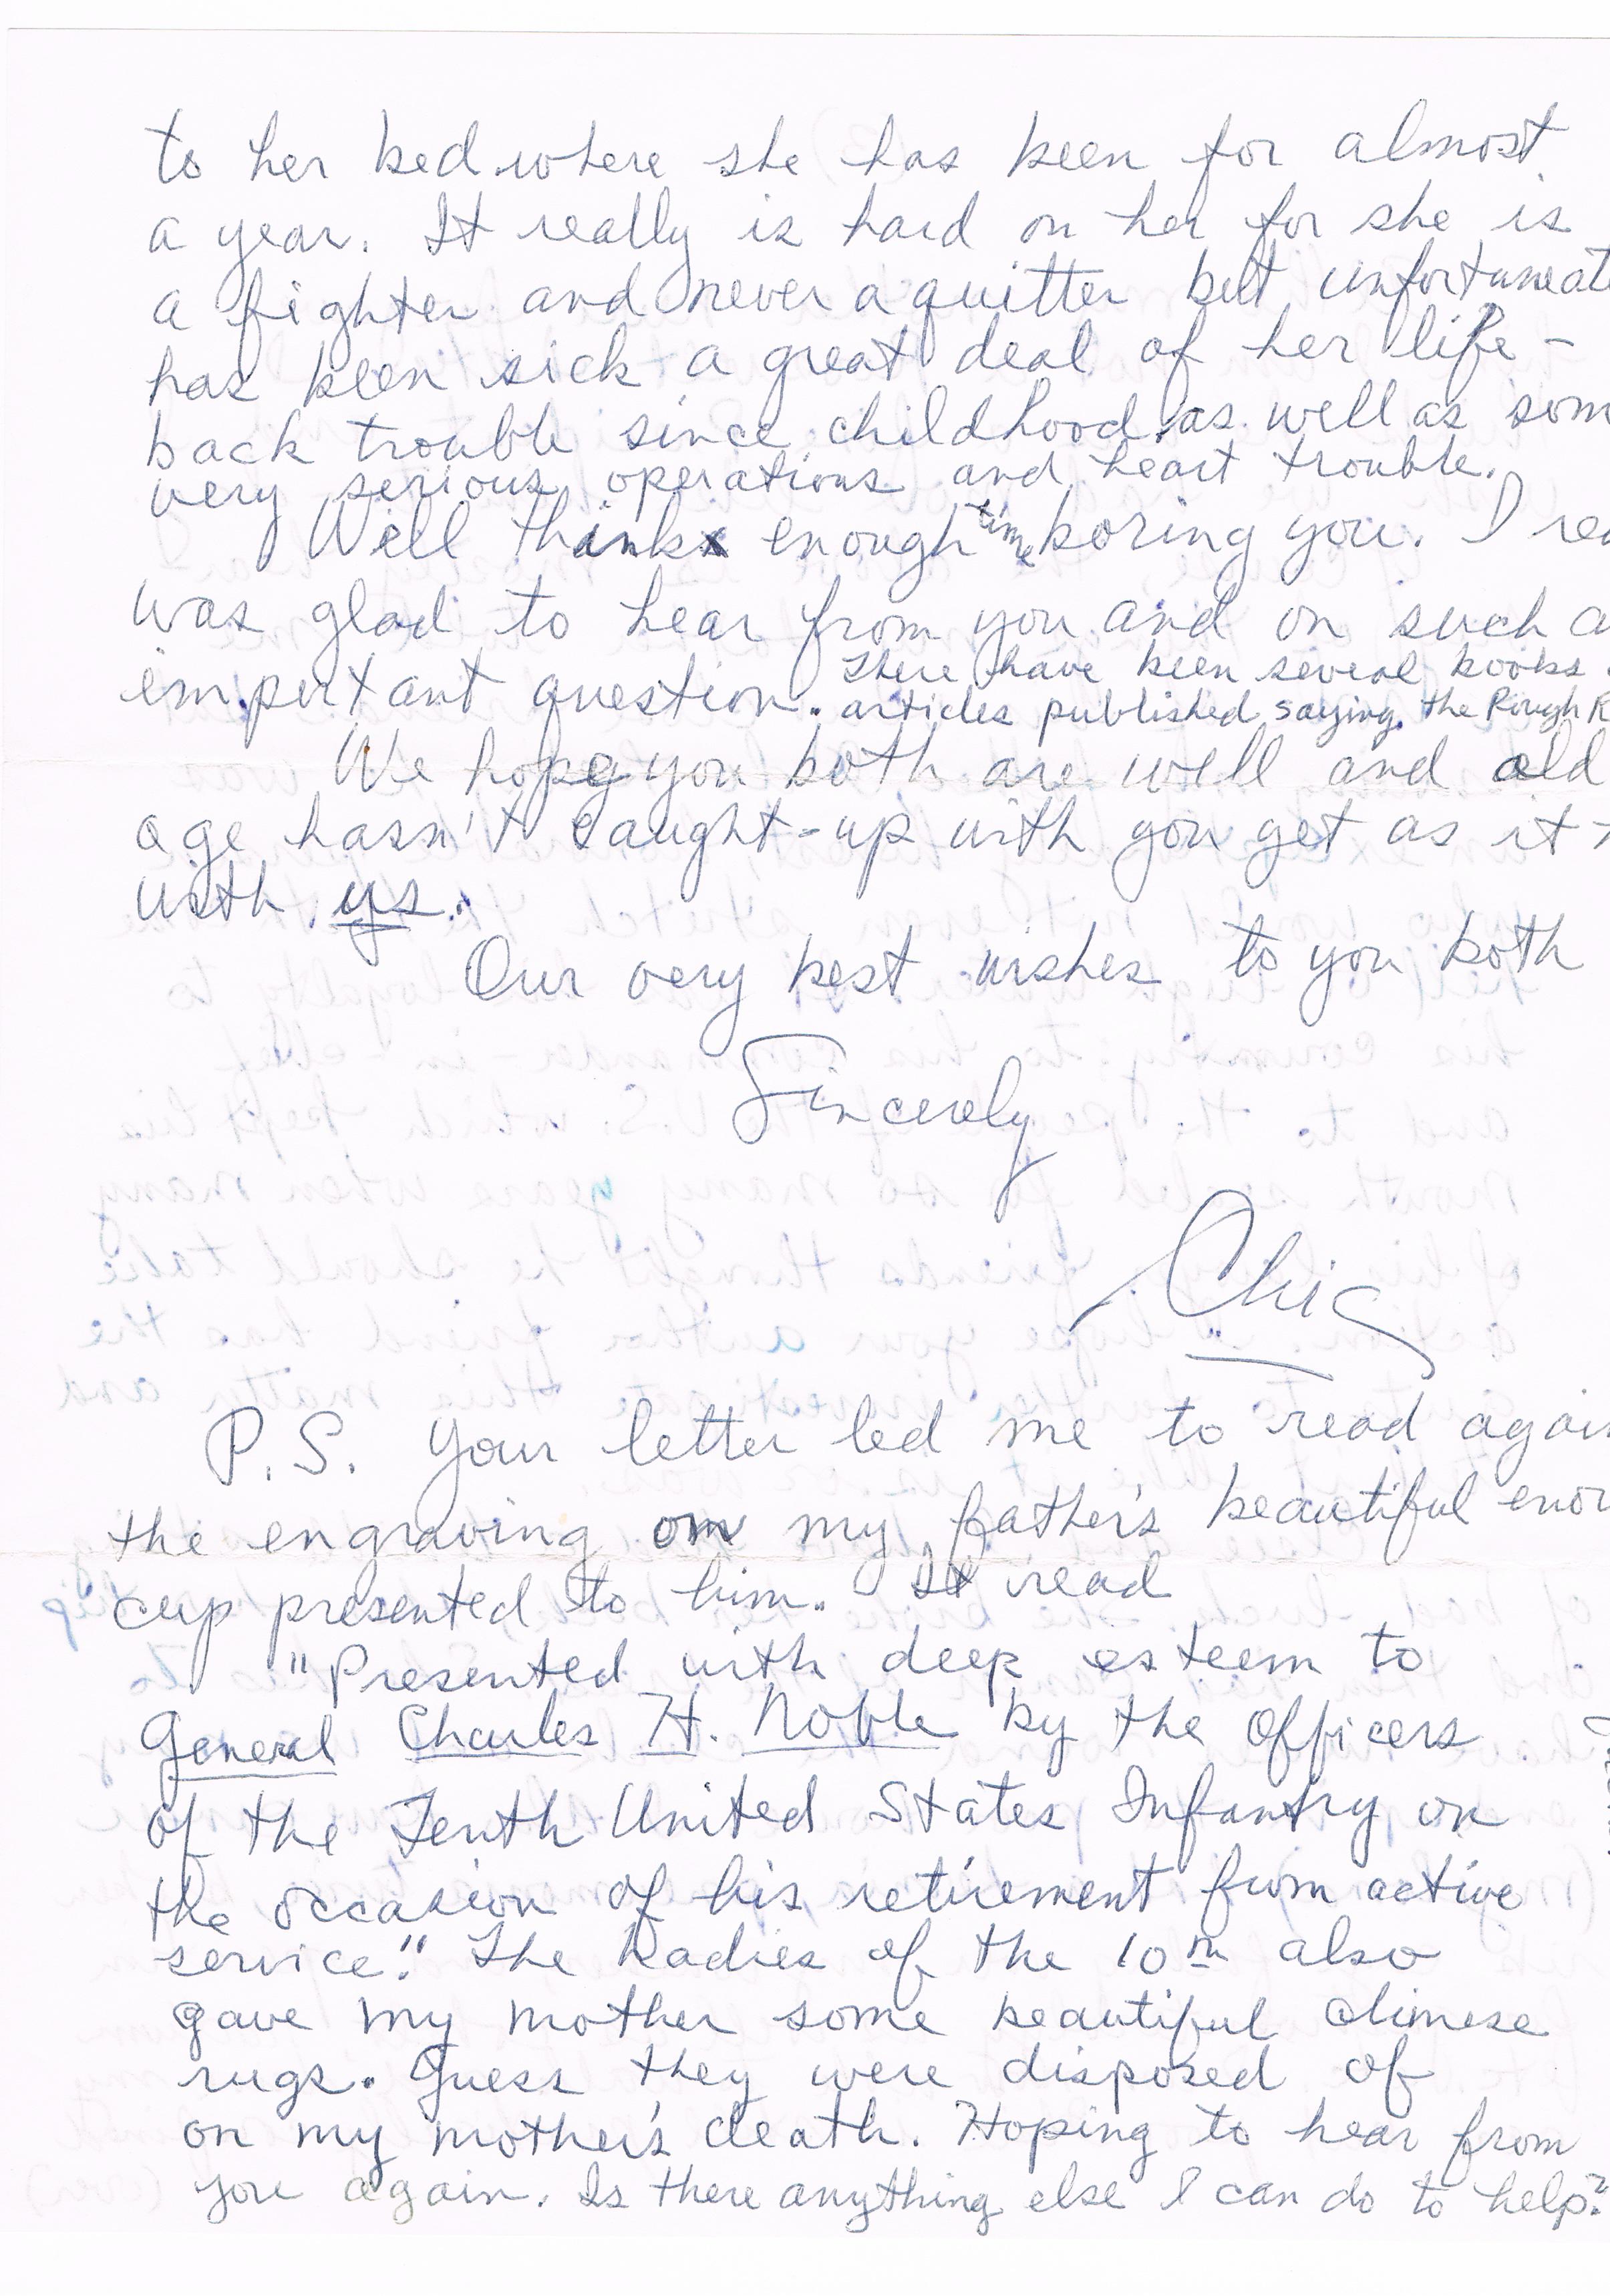 to her bed where she has been for almost
a year. It really is hard on her for she is
a fighter and never a quitter but unfortuneat
has been sick a great deal of her life -
back trouble since childhood as well as som
very serious operations and heart trouble.
Well think enough time boring you. I rea
was glad to hear from you and on such a
important question. There have been several books
articles published saying the Rough R
We hope you both are well and old
age hasn't caught-up with you yet as it
with us.
Our very best wishes to you both
Sincerely
Chic
P.S. Your letter led me to read again
the engraving on my father's beautiful enor
cup presented to him. It read
"Presented with deep esteem to
General Charles H. Noble by the Officers
of the Tenth United States Infantry on
the occasion of his retirement from active
service." The Ladies of the 10th also
gave my mother some beautiful Chinese
rugs. Guess they were disposed of
on my mother's death. Hoping to hear from
you again. Is there anything else I can do to help?